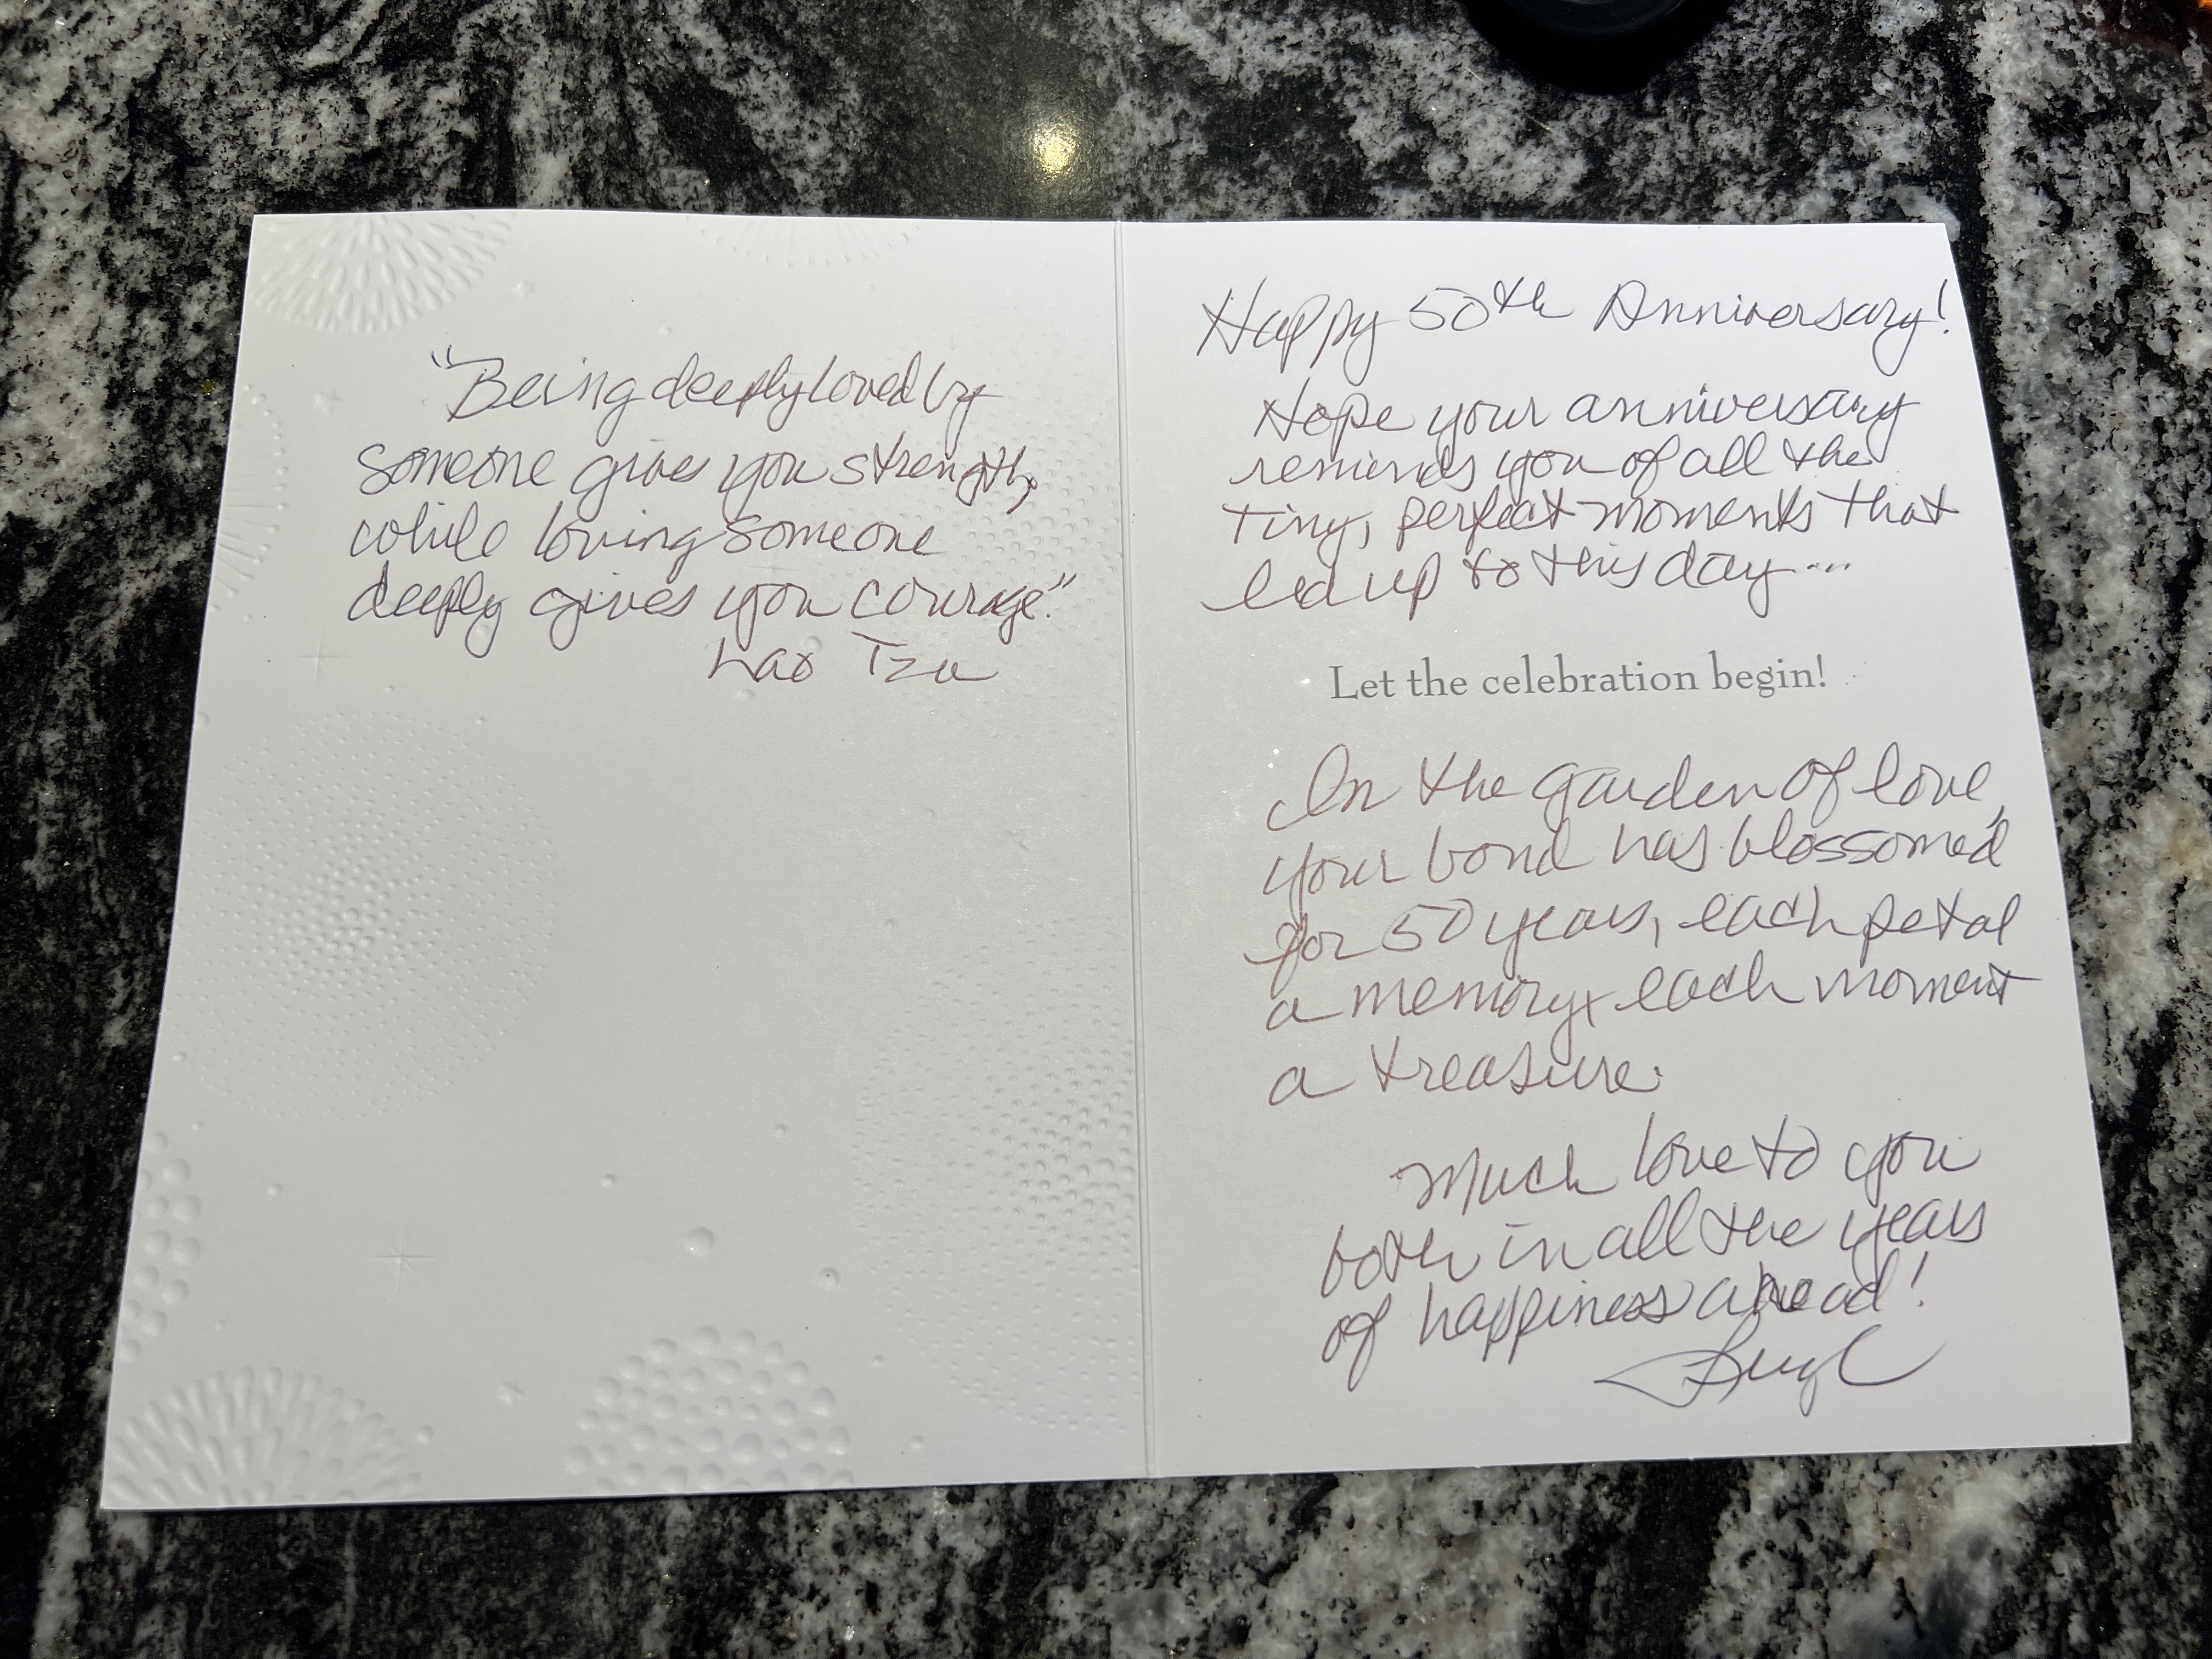 "Being deeply loved by
someone gives you strength,
while loving someone
deeply gives you courage."
Lao Tzu
Happy 50th Anniversary!
Hope your anniversary
reminds you of all the
tiny, perfect moments that
led up to this day...
Let the celebration begin!
In the garden of love,
your bond has blossomed
for 50 years, each petal
a memory, each moment
a treasure.
Much love to you
both in all the years
of happiness ahead!